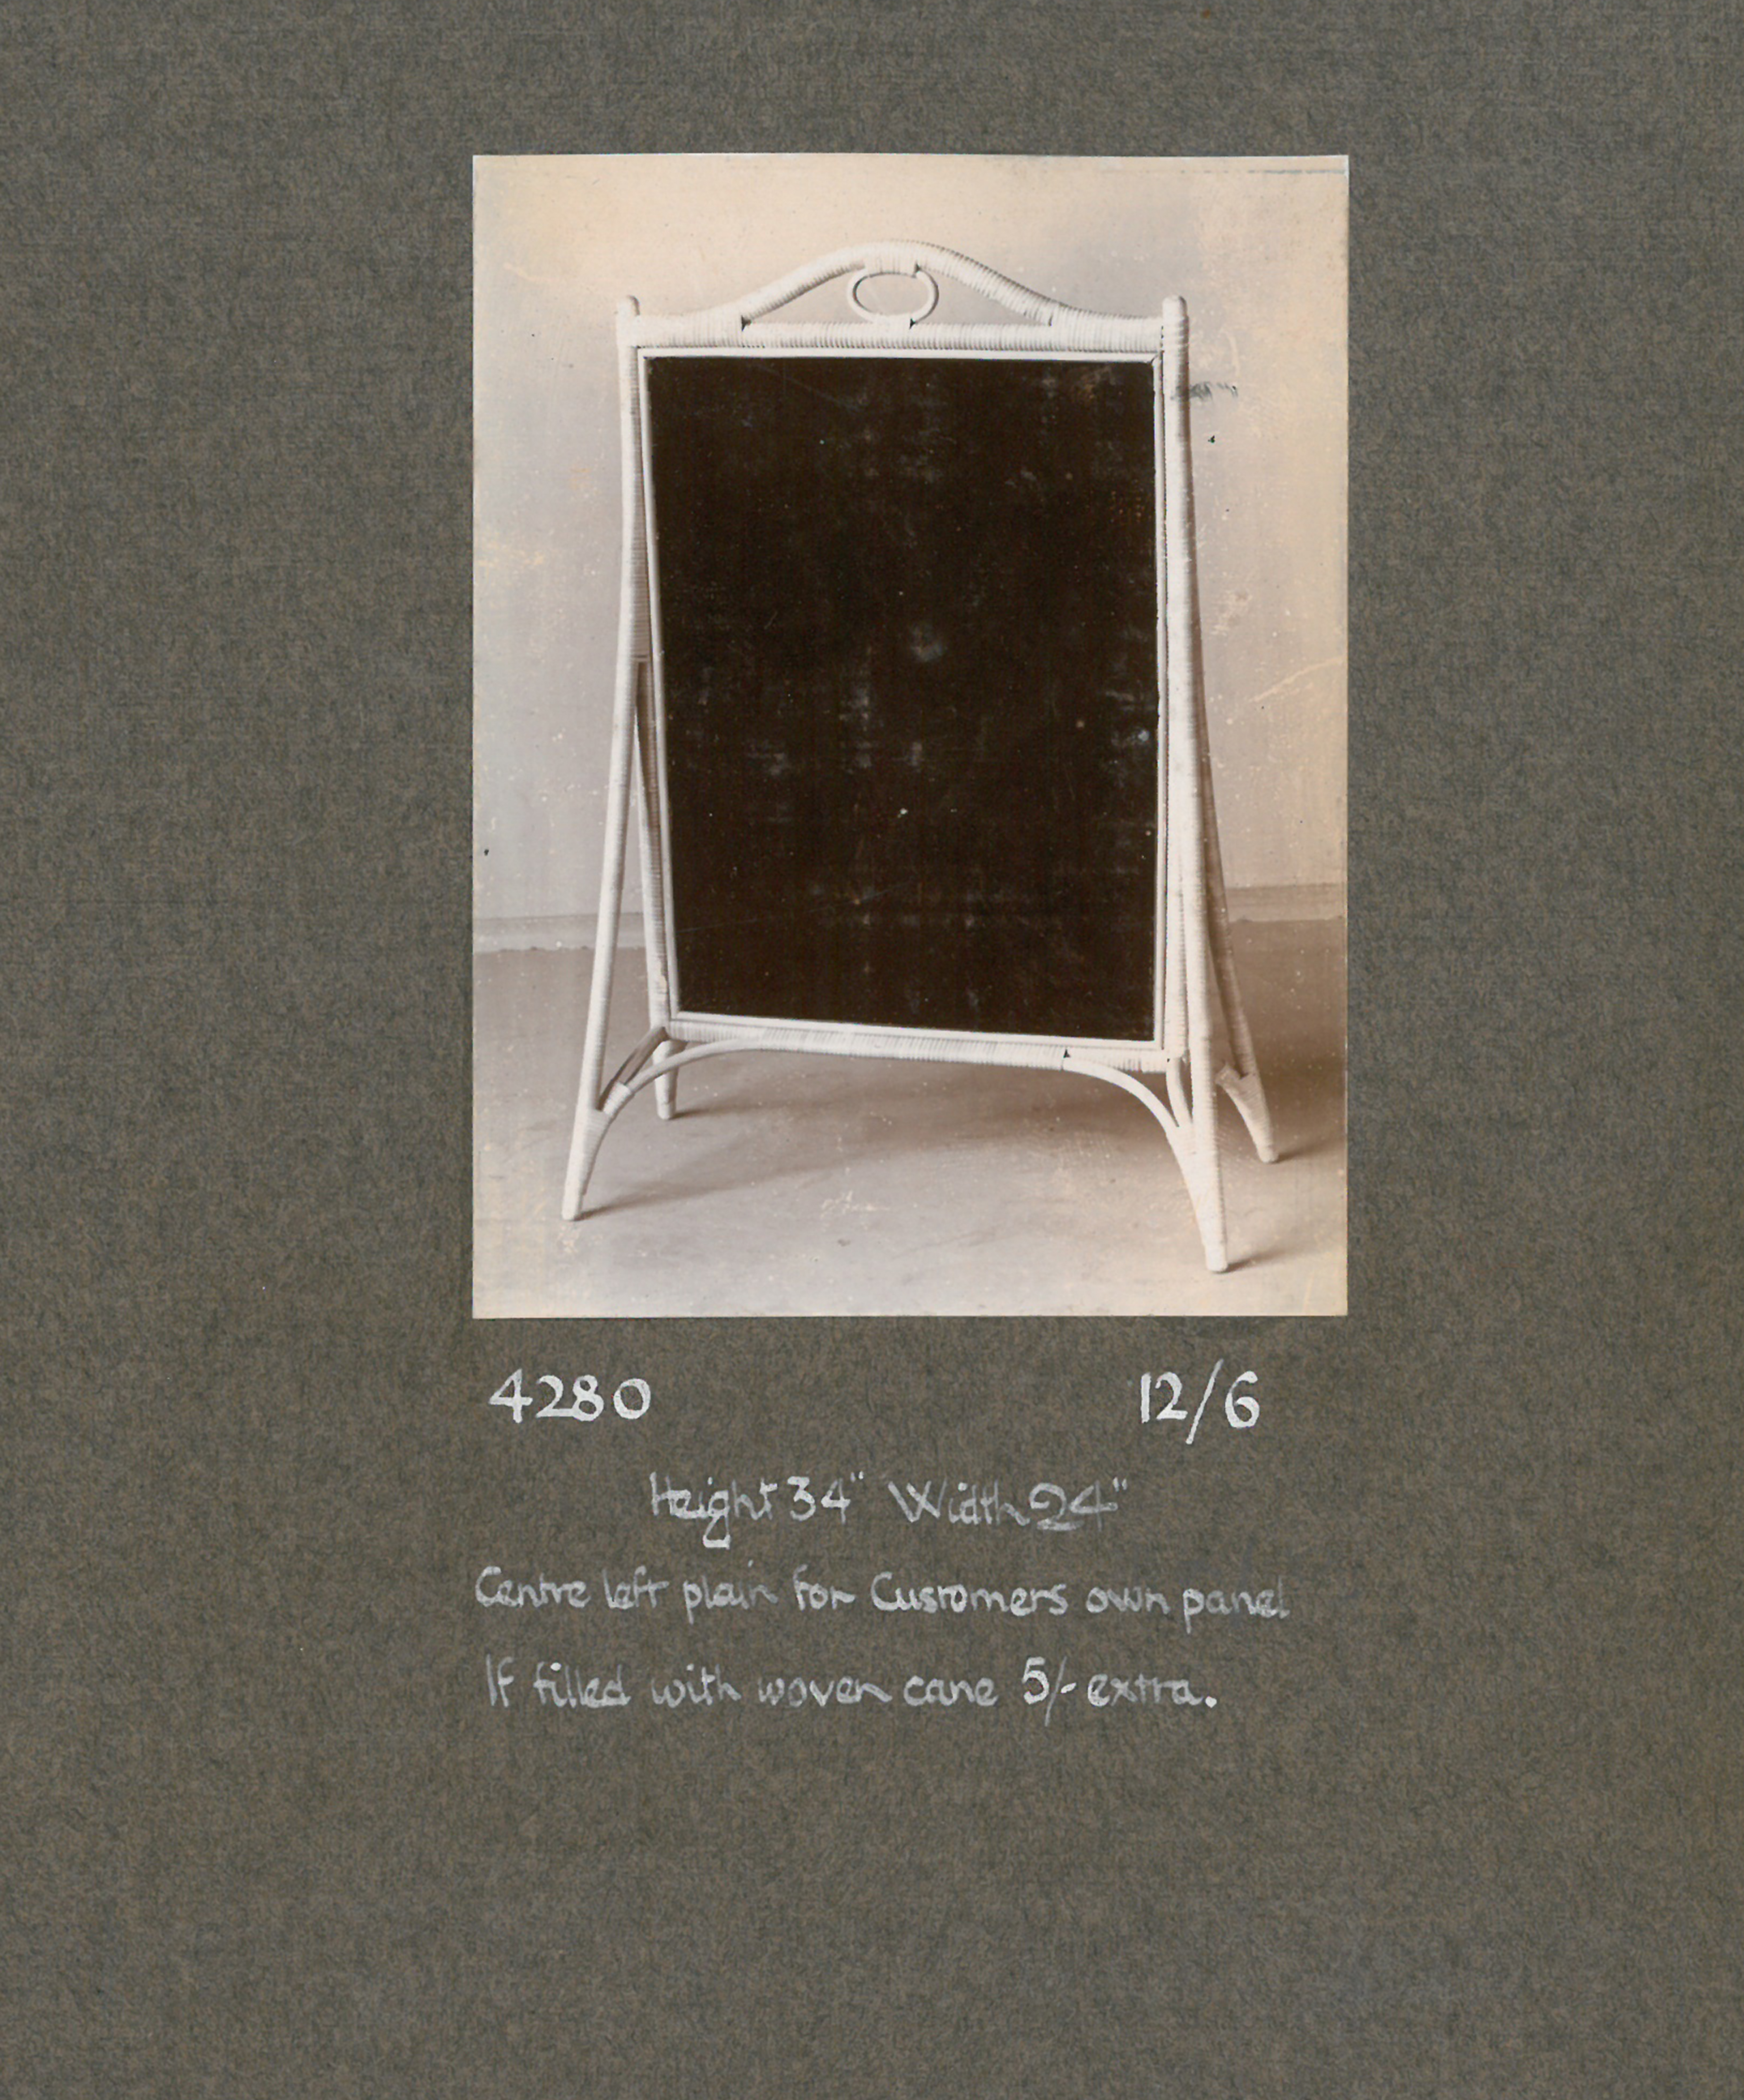 4280 12/6
Height 34" Width 24"
Centre left plain for Customers own panel
If filled with woven cane 5/- extra.